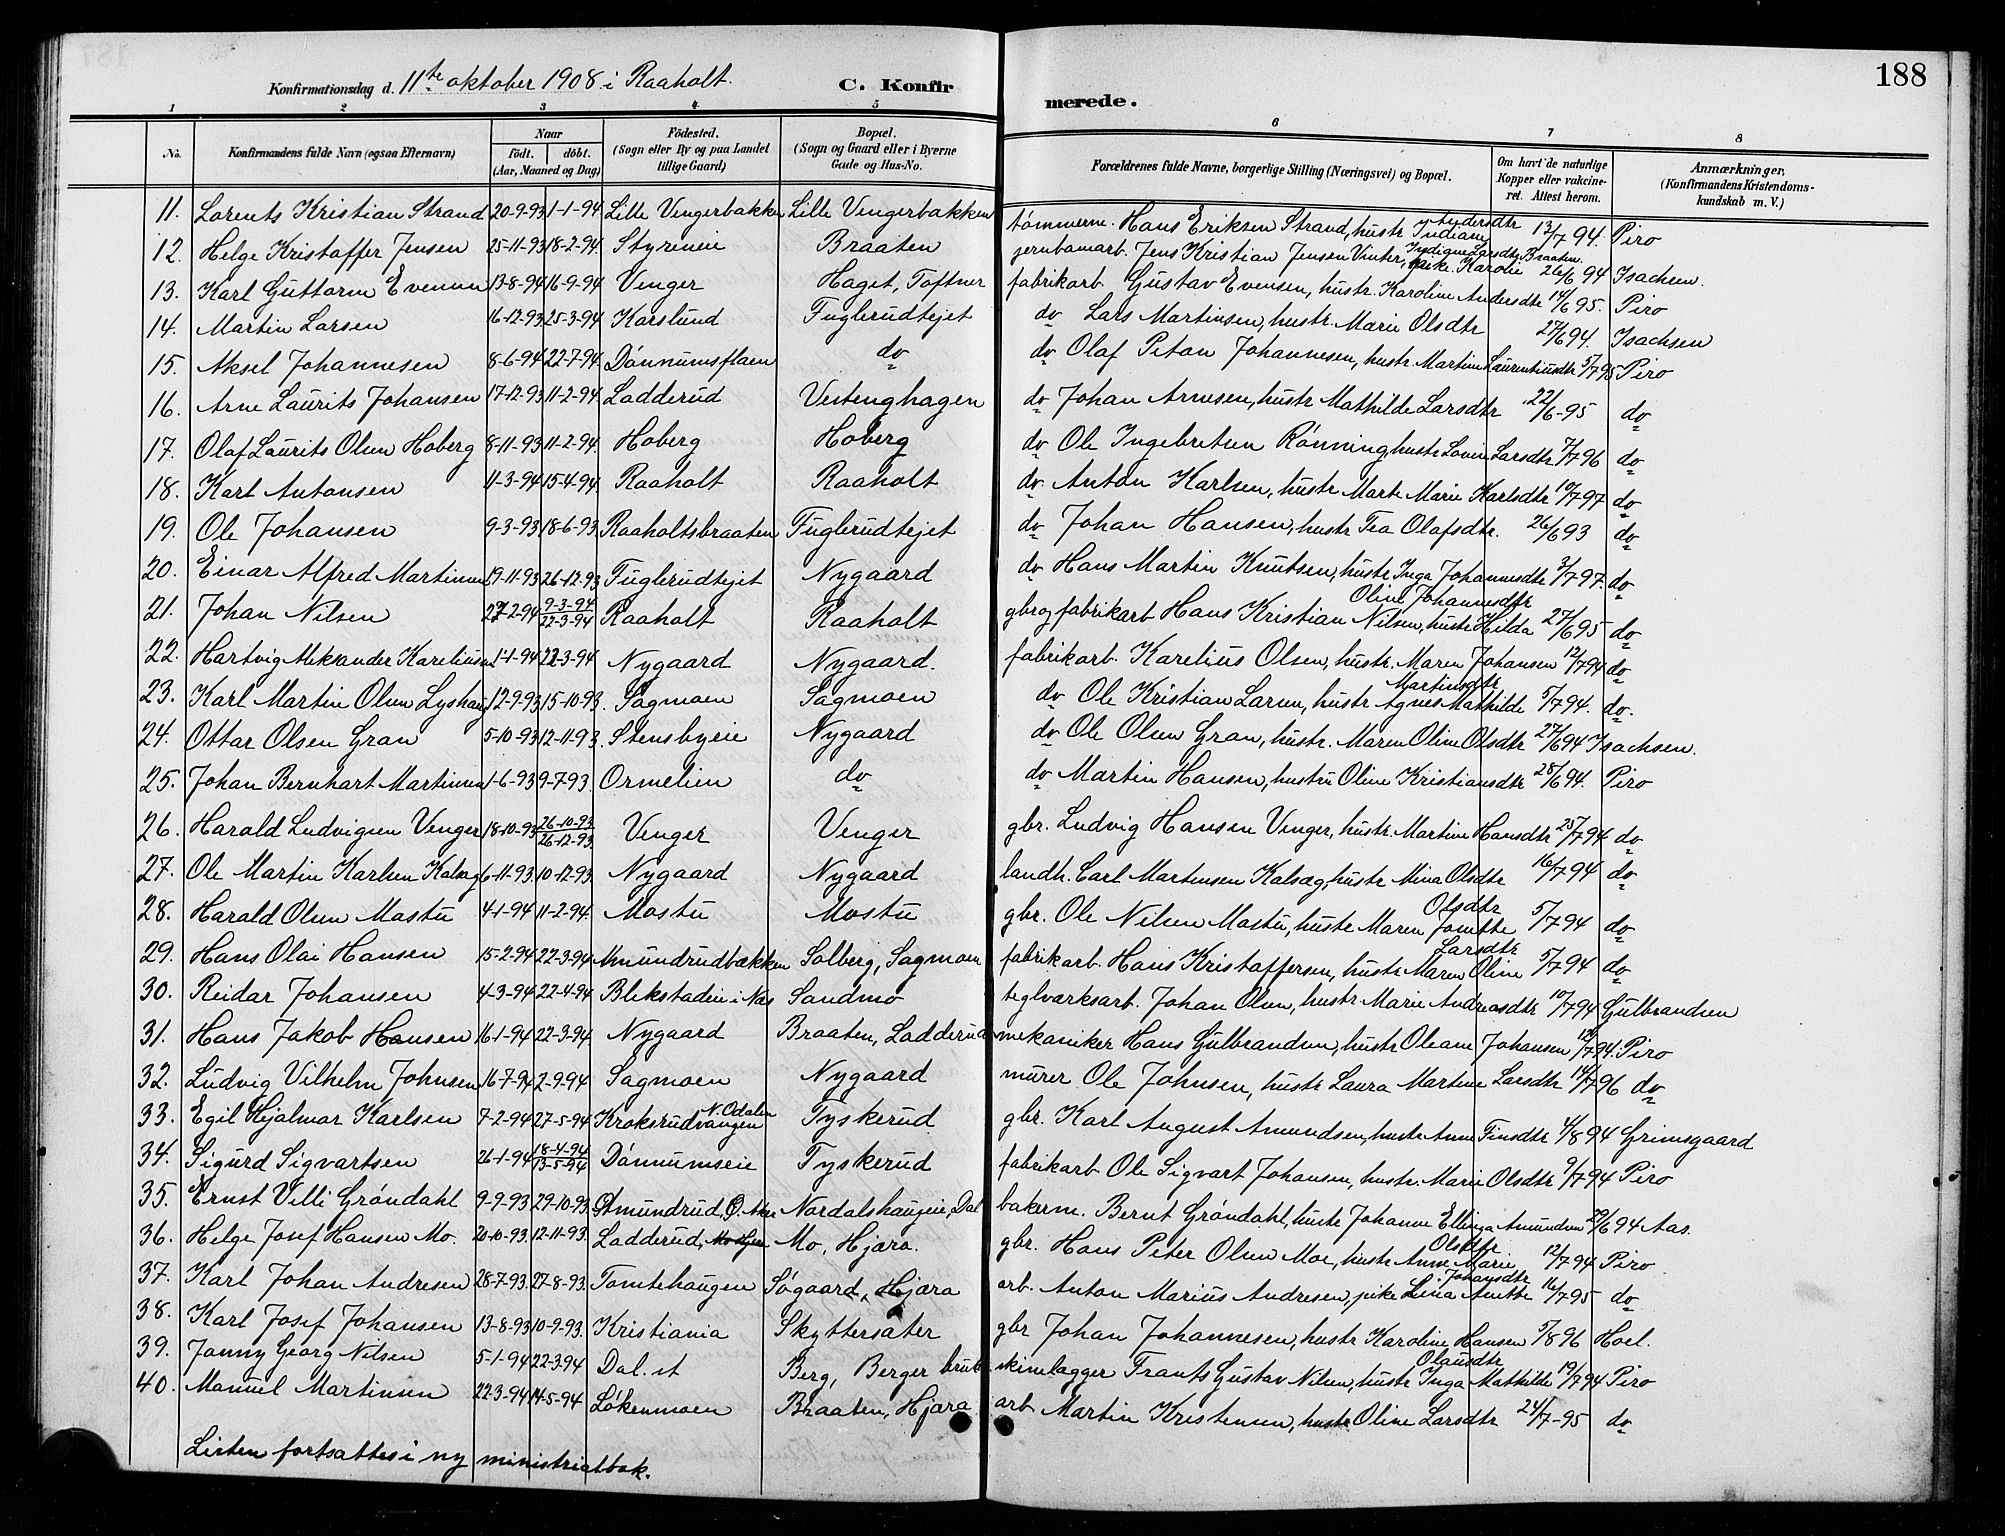 188
Konfirmationsdag d. 11te oktober 1908 i Raaholt. C. Konfirmerede.
1 2 3 4 5 6 7 8
No. Konfirmandens fulde Navn (ogsaa Efternavn) Naar Födt. döbt. (Aar, Maaned og Dag) Födested. (Sogn eller By og paa Landet tillige Gaard) Bopæl. (Sogn og Gaard eller i Byerne Gade og Hus-No. Forældrenes fulde Navne, borgerlige Stilling (Næringsvei) og Bopæl. Om havt de naturlige Kopper eller vakcineret. Attest herom. Anmærkninger, (Konfirmandens Kristendomskundskab m. V.)
11. Lorents Kristian Strand 20-9-93 1-1-94 Lille Vengerbakken Lille Vengerbakken tömmerm. Hans Eriksen Strand, hustr Indiane Andersdtr 13/7 94. Piro
12. Helge Kristoffer Jensen 25-11-93 18-2-94. Styrieie Braaten jernbanarb. Jens Kristian Jensen Vinter, Karolie Larsdtr Braaten. 26/6 94 Isachsen.
13. Karl Guttorm Evensen 13-8-94 16-9-94 Venger Haget, Toftner fabrikarb. Gustav Evensen, hustr. Karoline Andersdtr 14/6 95. Piro
14. Martin Larsen 16-12-93 25-3-94 Karslund Fuglerudtejet do Lars Martinsen, hustr. Marie Olsdtr 27/6 94. Isachsen
15. Aksel Johannesen 8-6-94 22-7-94. Dönnumsflaen do do Olaf Petan Johannesen, hustr Martine Laurentiusdtr 5/7 95 Piro
16. Arne Laurits Johansen 17-12-93 11-2-94. Ladderud Vestenghagen do Johan Arnesen, hustr Mathilde Larsdtr 22/6-95 do
17. Olaf Laurits Olsen Hoberg 8-11-93 11-2-94. Hoberg Hoberg do Ole Ingebretsen Rönning, hustr Lovise Larsdtr 7/7 96 do
18. Karl Antonsen 11-3-94 15-4-94. Raaholt Raaholt do Anton Karlsen, hustr Marte Marie Karlsdtr 10/7 97 do
19. Ole Johansen 9-3-93 18-6-93. Raaholtsbraaten Fuglerudtejet do Johan Hansen, hustr Tea Olafsdtr. 26/6 93 do
20. Einar Alfred Martinsen 19-11-93 26-12-93 Fuglerudtejet Nygaard do Hans Martin Knutsen, hustr Inga Johannesdtr 3/7 97. do
21. Johan Nilsen 27-2-94 9-3-94 22-3-94 Raaholt Raaholt gbr og fabrikarb Hans Kristian Nilsen, hustr Hilda Oline Johannesdtr 27/6 95 do
22. Hartvig Aleksander Kareliussen 1-1-94 22-3-94 Nygaard Nygaard. fabrikarb. Karelius Olsen, hustr. Maren Johansen 12/7 94 do
23. Karl Martin Olsen Lyshaug 12-9-93 15-10-93. Sagmoen Sagmoen do Ole Kristian Larsen, hustr Agnes Mathilde Martinsdtr 5/7 94. do.
24. Ottar Olsen Gran 5-10-93 12-11-93. Stensbyeie Nygaard do Ole Olsen Gran, hustr. Maren Oline Olsdtr 27/6 94 Isachsen.
25. Johan Bernhart Martinsen 1-6-93 9-7-93. Ormelien do do Martin Hansen, hustru Oline Kristiansdtr 28/6 94. Piro
26. Harald Ludvigsen Venger 18-10-93 26-10-93 26-12-93. Venger Venger gbr. Ludvig Hansen Venger, hustr. Martine Hansdtr 25/7 94 do
27. Ole Martin Karlsen Kalsæg 6-11-93 10-12-93. Nygaard Nygaard landh. Carl Martinsen Kalsæg, hustr Mina Olsdtr 16/7 94 do
28. Harald Olsen Mastu 4-1-94 11-2-94. Mostu Mostu gbr. Ole Nilsen Mastu, hustr Maren Jonette Olsdtr 5/7 94 do
29. Hans Olai Hansen 15-2-94 22-3-94 Amundrudbækken Solberg, Sagmoen fabrikarb. Hans Kristoffersen, hustr Maren Oline Larsdtr 5/7 94 do
30. Reidar Johansen 4-3-94 22-4-94 Blekstadeie i Næs Sandmo teglværksarb. Johan Olsen, hustr Marie Andreasdtr 10/7 94 Gulbrandsen
31. Hans Jakob Hansen 16-1-94 22-3-94. Nygaard Braaten, Ladderud mekaniker Hans Gulbrandsen, hustr Oleane Johansen 12/7 94. Piro
32. Ludvig Vilhelm Johnsen 16-7-94 2-9-94 Sagmoen Nygaard murer Ole Johnsen, hustr Laura Martine Larsdtr 14/7 96 do
33. Egil Hjalmar Karlsen 7-2-94 27-5-94 Kroksrudvangen N. Odalen Tyskerud gbr. Karl August Amundsen, hustr Anne Finsdtr 4/8 94 Grimsgaard
34. Sigurd Sigvartsen 26-1-94 18-4-94 13-5-94 Dönnumseie Tyskerud fabrikarb Ole Sigvart Johansen, hustr. Marie Olsdtr 9/7 94 Piro
35. Ernst Villi Gröndahl 9-9-93 29-10-93. Amundrud, Ö. Aker Nordalshaugeie, Dal bakerm. Bernt Gröndahl, hustr Johanne Ellinga Amundsen 29/6 94 Aas.
36. Helge Josef Hansen Mo. 20-10-93. 12-11-93. Ladderud, Mo Hjera Mo, Hjæra. gbr. Hans Peter Olsen Moe, hustr Anne Marie Olsdtr 12/7 94 Piro
37. Karl Johan Andresen 28-7-93. 27-8-93. Tomtehaugen Sögaard, Hjæra arb. Anton Marius Andresen, pike Lina Anette Johansdtr 16/7 95 do
38. Karl Josef Johansen 13-8-93 10-9-93. Kristiania Skyttersæter gbr Johan Johannesen, hustr Karoline Hansen 5/8 96 Hoel.
39. Jonny Georg Nilsen 5-1-94 22-3-94 Dal. st Berg, Berger bruk skinelægger Frants Gustav Nilsen, hustr Inga Mathilde Olausdtr 19/7 94 Piro
40. Manuel Martinsen 22-3-94 14-5-94 Lökenmoen Braaten, Hjæra arb Martin Kristensen, hustr Oline Larsdtr 24/7-95 do
Listen fortsættes i ny ministrialbok.